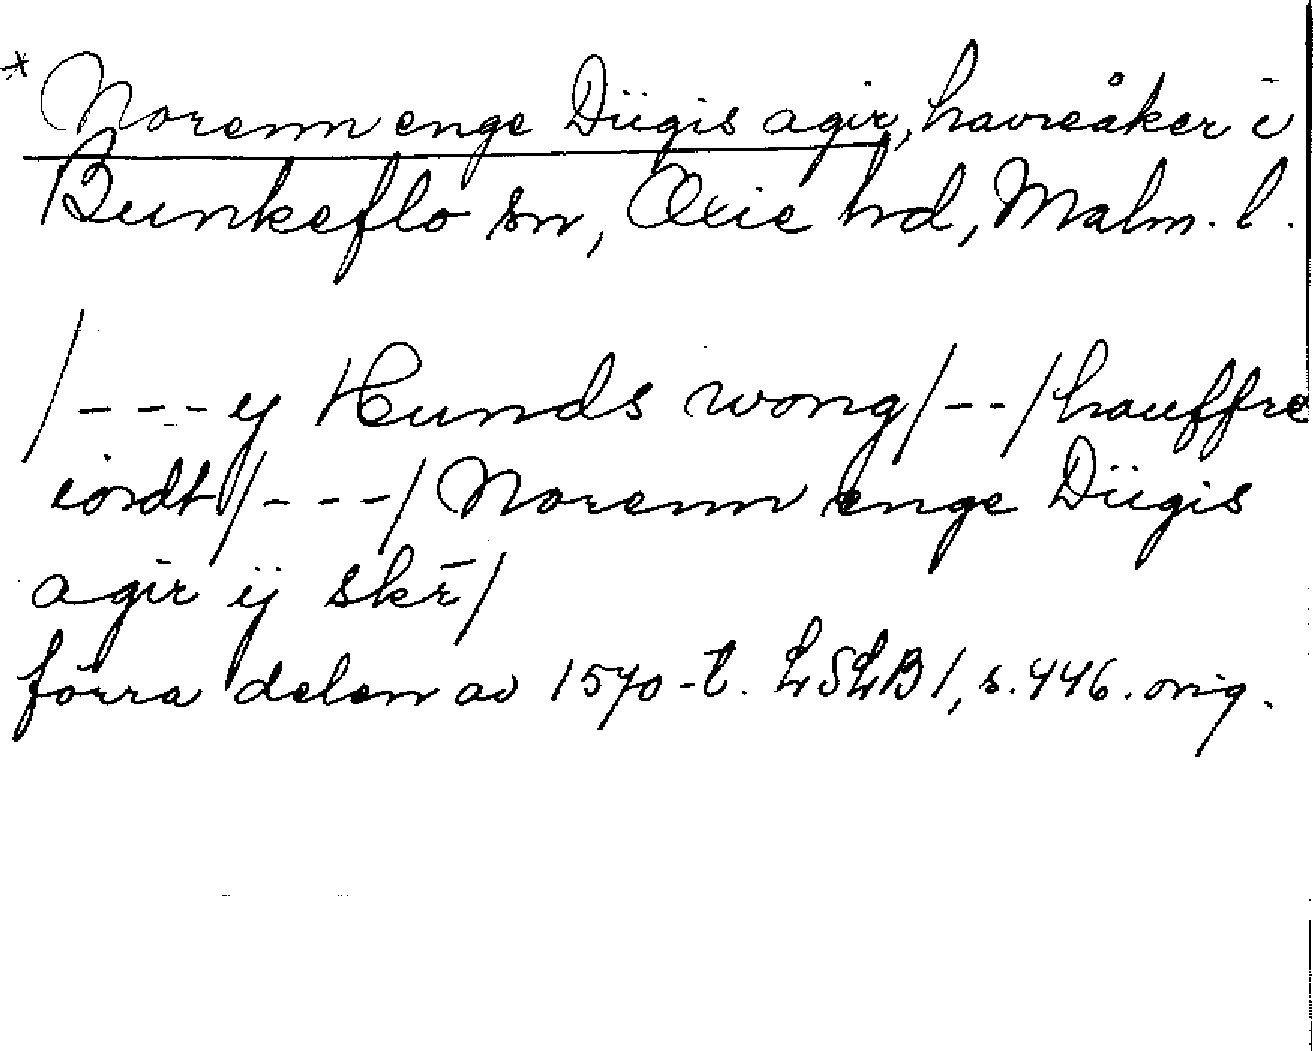 * Norenn enge Diigis agir, havreåker i
Bunkeflo sn, Oxie hd, Malm. l.
/---y Hunds wong/--/hauffre
iordt/---/Norenn enge Diigis
agir ij skr̄/
förra delen av 1570-t. LSLB 1, s. 446. orig.